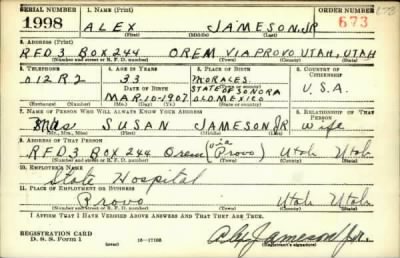 SERIAL NUMBER
1. NAME (Print)
ORDER NUMBER
1998
ALEX JAMESON, JR
673
(First) (Middle) (Last)
2. ADDRESS (Print)
RFD 3 BOX 244 OREM VIA PROVO UTAH, UTAH
(Number and street or R. F. D. number) (Town) (County) (State)
3. TELEPHONE
4. AGE IN YEARS
5. PLACE OF BIRTH
6. COUNTRY OF CITIZENSHIP
012R2
33
MORALES
DATE OF BIRTH
STATE OF SONORA
U.S.A.
MAR 20-1907
OLD MEXICO
(Exchange) (Number)
(Mo.) (Day) (Yr.)
(State or country)
7. NAME OF PERSON WHO WILL ALWAYS KNOW YOUR ADDRESS
8. RELATIONSHIP OF THAT PERSON
Mrs. SUSAN JAMESON JR wife
(Mr., Mrs., Miss) (First) (Middle) (Last)
9. ADDRESS OF THAT PERSON
RFD 3 Box 244 Orem (via Provo) Utah Utah
(Number and street or R. F. D. number) (Town) (County) (State)
10. EMPLOYER'S NAME
State Hospital
11. PLACE OF EMPLOYMENT OR BUSINESS
Provo Utah Utah
(Number and street or R. F. D. number) (Town) (County) (State)
I AFFIRM THAT I HAVE VERIFIED ABOVE ANSWERS AND THAT THEY ARE TRUE.
REGISTRATION CARD
D. S. S. Form 1
16-17105
Alex Jameson Jr.
(Registrant's signature)